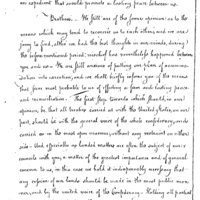 an expedient that would promote a lasting peace between us.
Brethren. We still are of the same opinion as to the
means which may tend to reconcile us to each other; and we are
sorry to find, altho we had the best thoughts in our minds, during
the before mentioned period mischief has nevertheless happened between
you and us. We are still anxious of putting our plan of accommo-
dation into execution, and we shall briefly inform you of the means
that seem most probable to us of effecting a firm and lasting peace
and reconciliation. The first step towards which should, in our
opinion, be that all treaties carried on with the United States, on our
part, should be with the general voice of the whole confederacy, and
carried on in the most open manner, without any restraint on either
side. And especially as landed matters are often the subject of our
councils with you, a matter of the greatest importance and of general
concern to us, in this case we hold it indispensably necessary that
any cession of our lands should be made in the most public man-
ner, and by the united voice of the Confederacy. Holding all partial